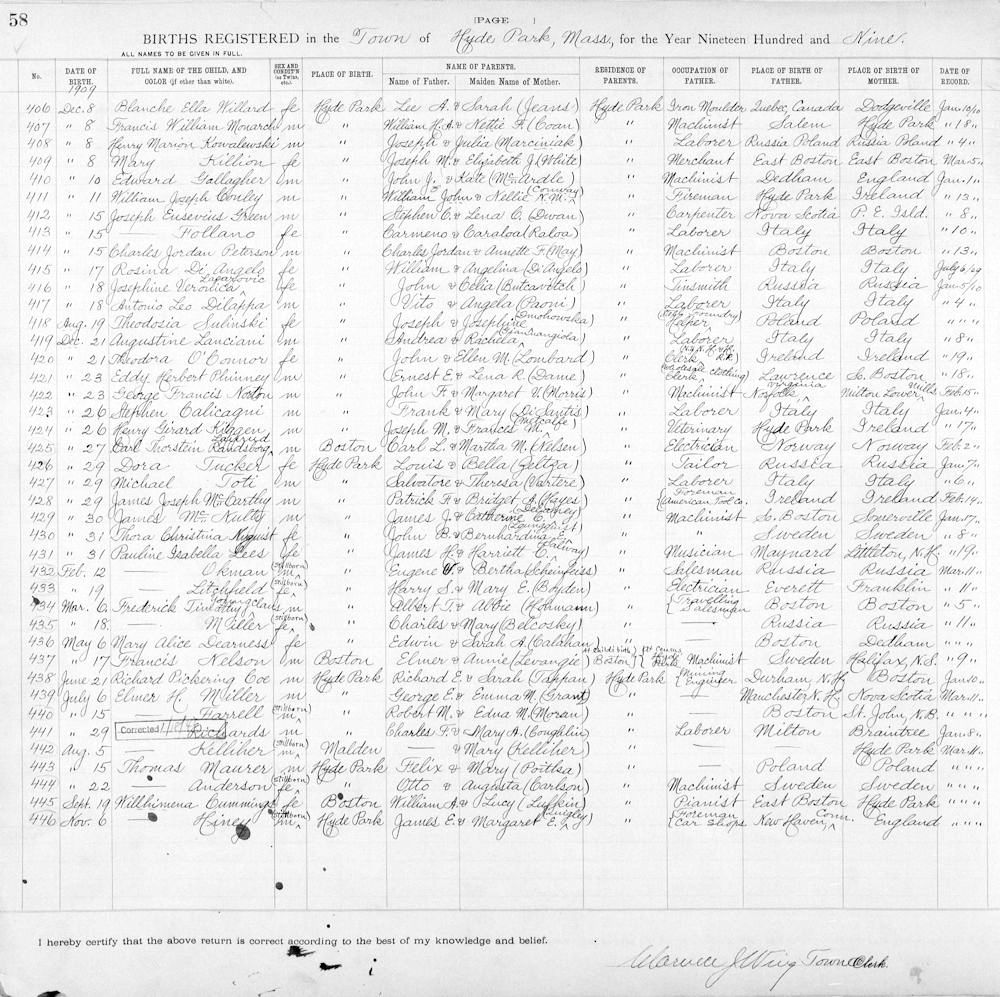 58
(PAGE )
BIRTHS REGISTERED in the Town of Hyde Park, Mass., for the Year Nineteen Hundred and Nine.
ALL NAMES TO BE GIVEN IN FULL.
No. DATE OF BIRTH. FULL NAME OF THE CHILD, AND COLOR (if other than white). SEX AND CONDIT'N (as Twins, etc.) PLACE OF BIRTH. NAME OF PARENTS. Name of Father. Maiden Name of Mother. RESIDENCE OF PARENTS. OCCUPATION OF FATHER. PLACE OF BIRTH OF FATHER. PLACE OF BIRTH OF MOTHER. DATE OF RECORD.
1909
406 Dec. 8 Blanche Ella Willard fe Hyde Park Lee A. & Sarah (Jeans) Hyde Park Iron Moulder Quebec, Canada Dodgeville Jan. 10/10
407 " 8 Francis William Monarch m " William H. A. & Nettie F. (Coan) " Machinist Salem Hyde Park " 18 "
408 " 8 Henry Marion Kowalewski m " Joseph & Julia (Marciniak) " Laborer Russia Poland Russia Poland " 4 "
409 " 8 Mary Killion fe " Joseph M. & Elizabeth J. (White) " Merchant East Boston East Boston Mar. 5 "
410 " 10 Edward Gallagher m " John J. & Kate (McArdle) " Machinist Dedham England Jan. 1 "
411 " 11 William Joseph Conley m " William John & Nellie K. M. (Conway) " Fireman Hyde Park Ireland " 13 "
412 " 15 Joseph Eusevius Green m " Stephen C. & Lena C. (Dwan) " Carpenter Nova Scotia P. E. Isld. " 8 "
413 " 15 — Follano fe " Carmeno & Caraloal (Raloa) " Laborer Italy Italy " 10 "
414 " 15 Charles Jordan Peterson m " Charles Jordan & Annette F. (May) " Machinist Boston Boston " 13 "
415 " 17 Rosina Di Angelo fe " William & Angelina (Di Angelo) " Laborer Italy Italy July 6/29
416 " 18 Josephine Veronica fe " John & Celia (Butcavitch) " Tinsmith Russia Russia Jan. 5/10
417 " 18 Antonio Leo Dilappa m " Vito & Angela (Paoni) " Laborer Italy Italy " 4 "
418 Aug. 19 Theodosia Sulinski fe " Joseph & Josephine (Dmohowska) " Poland Poland " " "
419 Dec. 21 Augustine Lanciani m " Andrea & Rachela (Giandrangiola) " Laborer Italy Italy " 8 "
420 " 21 Theodora O'Connor fe " John & Ellen M. (Lombard) " Clerk N.Y. N.H. & H. R.R. Ireland Ireland " 19 "
421 " 23 Eddy Herbert Phinney m " Ernest E. & Lena R. (Dame) " (Wholesale Clothing) Clerk Lawrence So. Boston " 18 "
422 " 23 George Francis Norton m " John F. & Margaret V. (Morris) " Machinist Norfolk, Virginia Milton Lower Mills Feb. 15 "
423 " 26 Stephen Calicagni m " Frank & Mary (Di Santis) " Laborer Italy Italy Jan. 4 "
424 " 26 Henry Girard Kiggen m " Joseph M. & Frances M. (Metcalfe) " Veterinary Hyde Park Ireland " 17 "
425 " 27 Carl Thorstein Randsborg m Boston Carl L. & Martha M. (Nelsen) " Electrician Norway Norway Feb. 2 "
426 " 29 Dora Tucker fe Hyde Park Louis & Bella (Geltza) " Tailor Russia Russia Jan. 7 "
427 " 29 Michael Toti m " Salvatore & Theresa (Vartere) " Laborer Italy Italy " 6 "
428 " 29 James Joseph McCarthy m " Patrick F. & Bridget A. (Hayes) " Foreman (American Tool Co. Ireland Ireland Feb. 14 "
429 " 30 James McNulty m " James J. & Catherine C. (Delorney) " Machinist So. Boston Somerville Jan. 17 "
430 " 31 Thora Christina August fe " John B. & Bernhardina E. (Ljungquist) " " Sweden Sweden " 8 "
431 " 31 Pauline Isabella Lees fe " James H. & Harriett E. (Calway) " Musician Maynard Littleton, N. H. " 19 "
432 Feb. 12 — Okman (Stillborn) m " Eugene Y. & Bertha (Scheinfeiss) " Salesman Russia Russia Mar. 11 "
433 " 19 — Litchfield (Stillborn) fe " Harry S. & Mary E. (Boyden) " Electrician Everett Franklin " 11 "
434 Mar. 6 Frederick Timothy Youngclaus m " Albert T. & Abbie (Hohmann) " {Travelling Salesman Boston Boston " 5 "
435 " 18 — Miller (Stillborn) fe " Charles & Mary (Belcosky) " — Russia Russia " 11 "
436 May 6 Mary Alice Dearness fe " Edwin & Sarah A. (Calahan) " — Boston Dedham " " "
437 " 17 Francis Nelson m Boston Elmer & Annie (Levangie) (At child's birth) Boston (At Census) Hyde Park Machinist Sweden Halifax, N.S. " 9 "
438 June 21 Richard Pickering Coe m Hyde Park Richard E. & Sarah (Tappan) Hyde Park {Mining Engineer Durham, N. H. Boston Jan. 10 "
439 July 6 Elmer H. Miller m " George E. & Emma M. (Grant) " Manchester N. H. Nova Scotia Mar. 11 "
440 " 15 — Farrell (Stillborn) m " Robert M. & Edna M. (Moran) " — Boston St. John, N. B. " " "
441 " 29 Corrected Richards m " Charles F. & Mary A. (Coughlin) " Laborer Milton Braintree Jan. 8 "
442 Aug. 5 — Kelliher (Stillborn) m Malden — & Mary (Kelliher) " — — Hyde Park Mar. 11 "
443 " 15 Thomas Maurer m Hyde Park Felix & Mary (Poitlsa) " — Poland Poland " " "
444 " 22 — Anderson (Stillborn) fe " Otto & Augusta (Carlson) " Machinist Sweden Sweden " " "
445 Sept. 19 Willhimena Cummings fe Boston William A. & Lucy (Lufkin) " Pianist East Boston Hyde Park " " "
446 Nov. 6 — Hiney (Stillborn) m Hyde Park James E. & Margaret E. (Quigley) " {Foreman Car Shops New Haven, Conn. England " " "
I hereby certify that the above return is correct according to the best of my knowledge and belief.
Town Clerk.